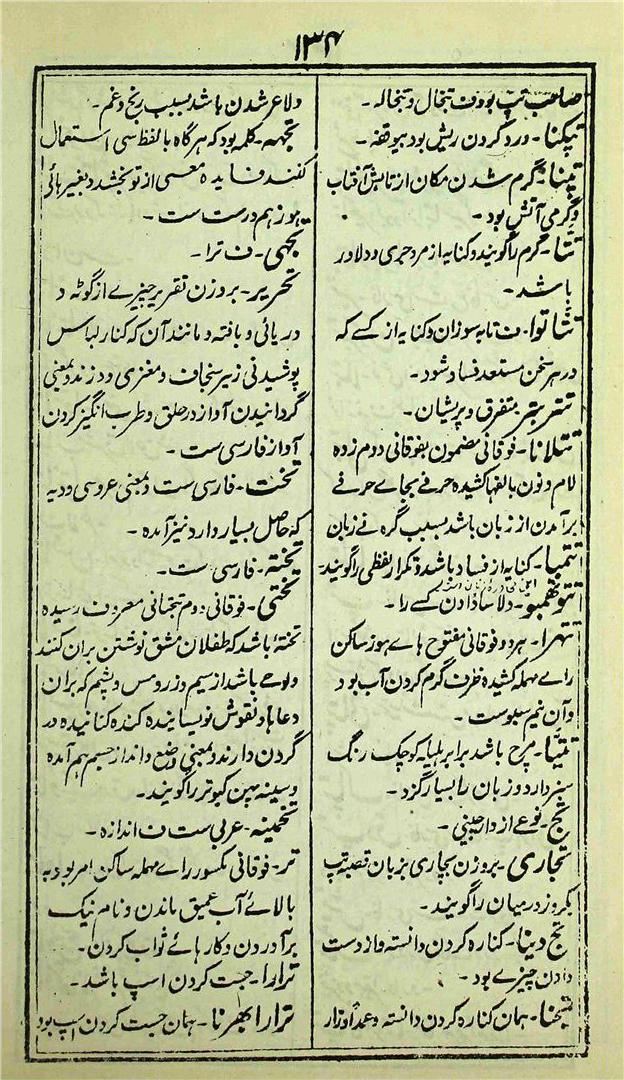 ۱۳۴
صاحب تپ بود ف تبخال و تبخاله ـ
تپکنا ـ درد کردن ریش بود بوقفه ـ
تپنا ـ گرم شدن مکان از تابش آفتاب
و گرمی آتش بود ـ
تتا ـ گرم را گویند و کنایه از مرد جری و دلاور
باشد ـ
تتا توا ـ ف تابه سوزان و کنایه از کسے که
در هر سخن مستعد فساد شود ـ
تتر بتر ـ متفرق و پریشان ـ
تتلانا ـ فوقانی مضموم بفوقانی دوم زده
لام و نون بالفها کشیده حرفے بجاے حرفے
برآمدن از زبان باشد بسبب گره نے زبان
تتمبا ـ کنایه از فساد باشد و تکرار لفظی را گویند
تتو تھمبو ـ دلاسا دادن کسے را ـ
تتهرا ـ هر دو فوقانی مفتوح هاے هوز ساکن
راے مهمله کشیده ظرف گرم کردن آب بود
و آن نیم سبوست ـ
تتیا ـ مرچ باشد برابر پلپل کوچک رنگ
سبز دارد و زبان را بسیار گزد ـ
تج ـ نوعے از دارچینی ـ
تجاری ـ بروزن بچاری بزبان قصبه تپ
یکروز درمیان را گویند ـ
تج دینا ـ کناره کردن دانسته و از دست
دادن چیزے بود ـ
تجنا ـ همان کناره کردن دانسته و عمداً و زار
و لاغر شدن باشد بسبب رنج و غم ـ
تجهه ـ کلمه بود که هرگاه بالفظ سی استعمال
کنند فایده معنی از تو بخشد و بغیر هائے
هوز هم درست ست ـ
تجهی ـ ف ترا ـ
تحریر ـ بروزن تقریر چیزے از گوٹه و
دریائی و بافته و مانند آن که کنار لباس
پوشیدنی زیر سنجاف و مغزی دوزند و بمعنی
گردانیدن آواز در حلق و طرب انگیز کردن
آواز فارسی ست ـ
تخت ـ فارسی ست و بمعنی عروسی و دیه
که حاصل بسیار دارد نیز آمده ـ
تخته ـ فارسی ست ـ
تختی ـ فوقانی دوم بتحتانی معروف رسیده
تختهٔ باشد که طفلان مشق نوشتن بران کنند
و لوحے باشد از سیم و زر و مس و یشم که بران
دعاها و نقوش نویسانیده کنده کنانیده در
گردن دارند و بمعنی وضع و انداز جسم هم آمده
و سینه پهن کبوتر را گویند ـ
تخمینه ـ عربی ست ف اندازه ـ
تر ـ فوقانی مکسور راے مهمله ساکن امر بود به
بالائے آب عمیق ماندن و نام نیک
برآوردن و کارهائے ثواب کردن ـ
ترارا ـ جست کردن اسپ باشد ـ
ترارا بھرنا ـ همان جست کردن اسپ بود